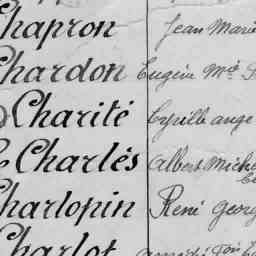 Chapron Jean Marie
Chardon Eugène Mce
Charité Cyrille ange
Charlés Albert Michel
Charlopin René Georg
Charlot